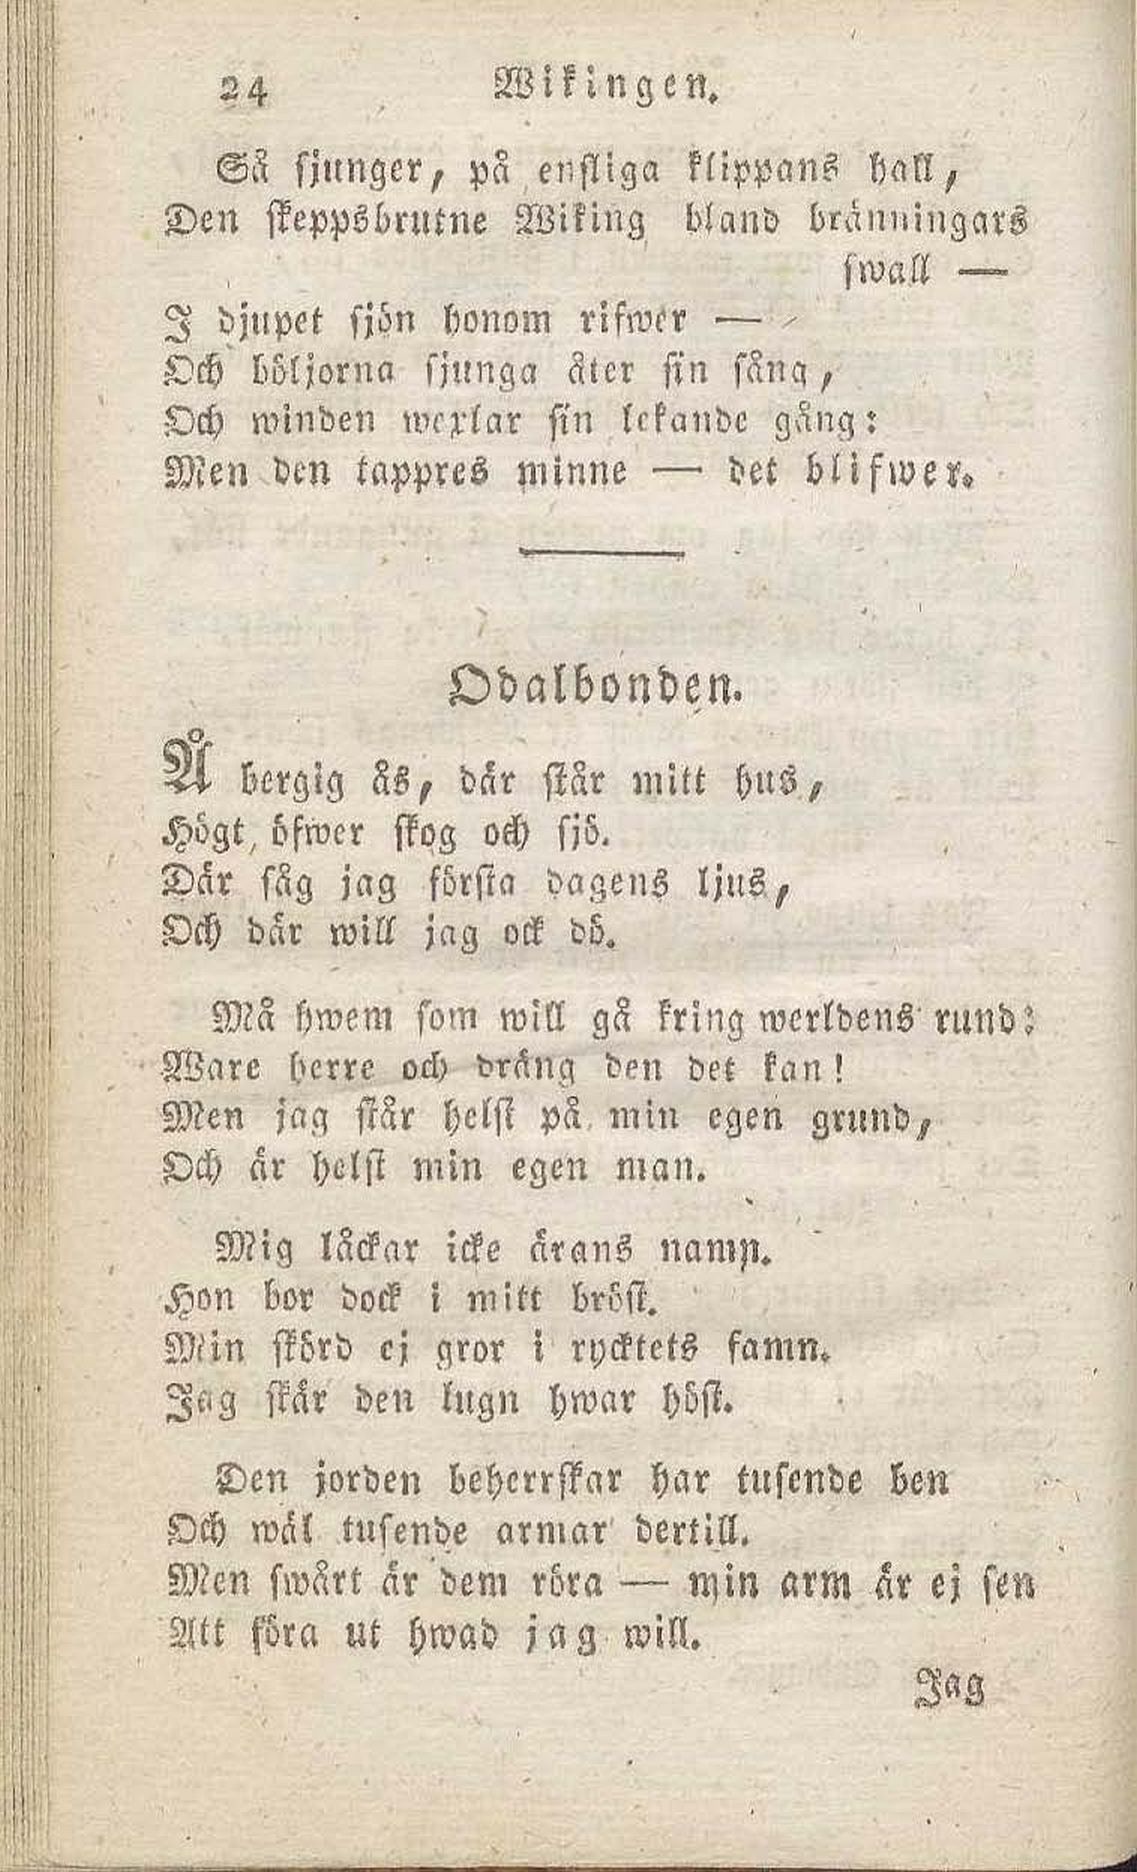 24 Wikingen.
Så sjunger, på ensliga klippans hall,
Den skeppsbrutne Wiking bland bränningars
swall —
I djupet sjön honom rifwer —
Och böljorna sjunga åter sin sång,
Och winden wexlar sin lekande gång:
Men den tappres minne — det blifwer.
Odalbonden.
Å bergig ås, där står mitt hus,
Högt öfwer skog och sjö.
Där såg jag första dagens ljus,
Och där will jag ock dö.
Må hwem som will gå kring werldens rund:
Ware herre och dräng den det kan!
Men jag står helst på min egen grund,
Och är helst min egen man.
Mig låckar icke ärans namn.
Hon bor dock i mitt bröst.
Min skörd ej gror i rycktets famn.
Jag skär den lugn hwar höst.
Den jorden beherrskar har tusende ben
Och wäl tusende armar dertill.
Men swårt är dem röra — min arm är ej sen
Att föra ut hwad jag will.
Jag